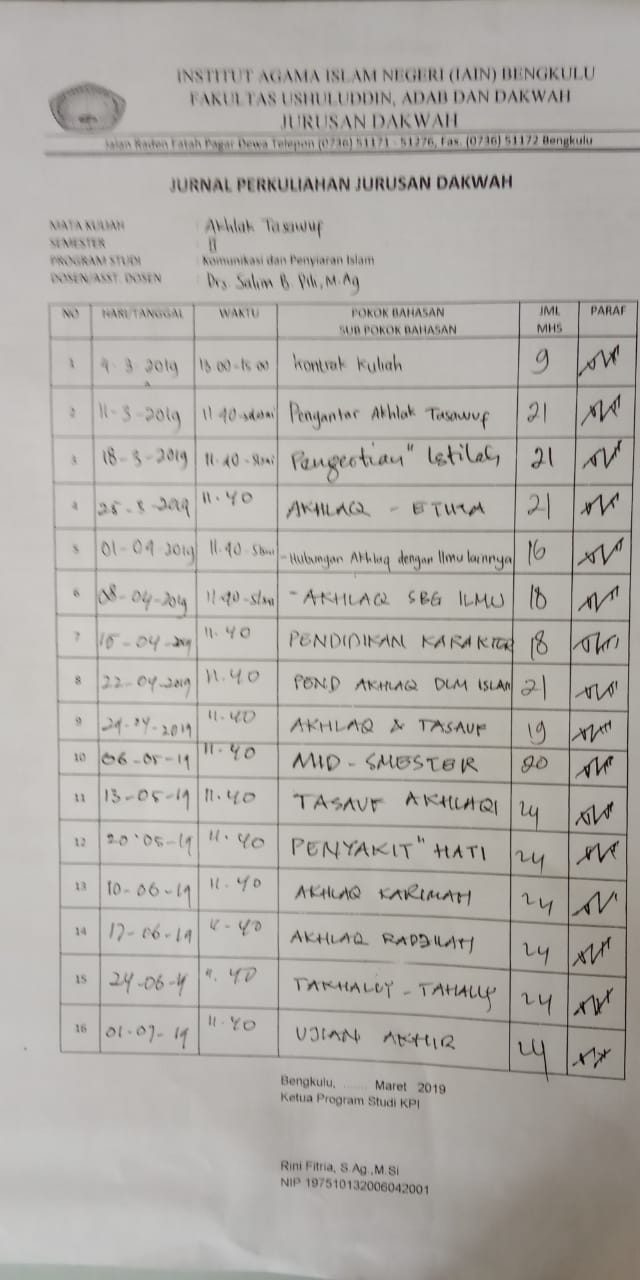 INSTITUT AGAMA ISLAM NEGERI (IAIN) BENGKULU
FAKULTAS USHULUDDIN, ADAB DAN DAKWAH
JURUSAN DAKWAH
Jalan Raden Fatah Pagar Dewa Telepon (0736) 51171 - 51276, Fax. (0736) 51172 Bengkulu
JURNAL PERKULIAHAN JURUSAN DAKWAH
MATA KULIAH : Akhlak Tasawuf
SEMESTER : II
PROGRAM STUDI : Komunikasi dan Penyiaran Islam
DOSEN/ASST. DOSEN : Drs. Salim B. Pili, M.Ag
NO HARI/TANGGAL WAKTU POKOK BAHASAN SUB POKOK BAHASAN JML MHS PARAF
1 4-3-2019 13.00-15.00 kontrak kuliah 9
2 11-3-2019 11.40 Pengantar Akhlak Tasawuf 21
3 18-3-2019 11.40 Pengertian" Istilah 21
4 25-3-2019 11.40 AKHLAQ - ETIKA 21
5 01-04-2019 11.40 - Hubungan Akhlaq dengan Ilmu lainnya 16
6 08-04-2019 11.40 - AKHLAQ SBG ILMU 18
7 15-04-2019 11.40 PENDIDIKAN KARAKTER 18
8 22-04-2019 11.40 PEND AKHLAQ DLM ISLAM 21
9 29-04-2019 11.40 AKHLAQ & TASAUF 19
10 06-05-19 11.40 MID-SMESTER 20
11 13-05-19 11.40 TASAUF AKHLAQI 24
12 20-05-19 11.40 PENYAKIT" HATI 24
13 10-06-19 11.40 AKHLAQ KARIMAH 24
14 17-06-19 11-40 AKHLAQ RADZILAH 24
15 24-06-19 11.40 TAKHALLY - TAHALLY 24
16 01-07-19 11.40 UJIAN AKHIR 24
Bengkulu, ....... Maret 2019
Ketua Program Studi KPI
Rini Fitria, S.Ag.,M.Si
NIP 197510132006042001